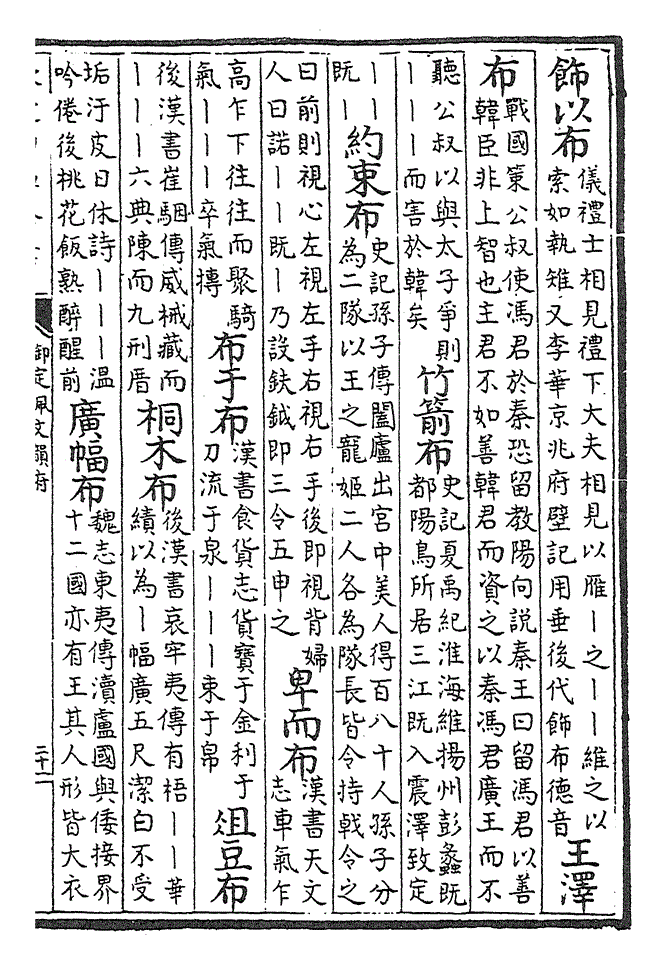 飾以布儀禮士相見禮下大夫相見以雁丨之丨丨維之以
索如執雉又李華京兆府壁記用垂後代飾布德音王澤
布戰國策公叔使馮君於秦恐留教陽向說秦王曰留馮君以善
韓臣非上智也主君不如善韓君而資之以秦馮君廣王而不
聽公叔以與太子爭則
丨丨丨而害於韓矣竹箭布史記夏禹紀淮海維揚州彭蠡既
都陽鳥所居三江既入震澤致定
丨丨
既丨約束布史記孫子傳闔廬出宮中美人得百八十人孫子分
為二隊以王之寵姬二人各為隊長皆令持戟令之
曰前則視心左視左手右視右手後即視背婦
人曰諾丨丨既丨乃設鈇鉞即三令五申之卑而布漢書天文
志車氣乍
高乍下往往而聚騎
氣丨丨丨卒氣摶布于布漢書食貨志貨寶于金利于
刀流于泉丨丨丨束于帛俎豆布
後漢書崔駰傳威械藏而
丨丨丨六典陳而九刑厝桐木布後漢書哀牢夷傳有梧丨丨華
績以為丨幅廣五尺潔白不受
垢汙皮日休詩丨丨丨溫
吟倦後桃花飯熟醉醒前廣幅布魏志東夷傳瀆盧國與倭接界
十二國亦有王其人形皆大衣
御定佩文韻府